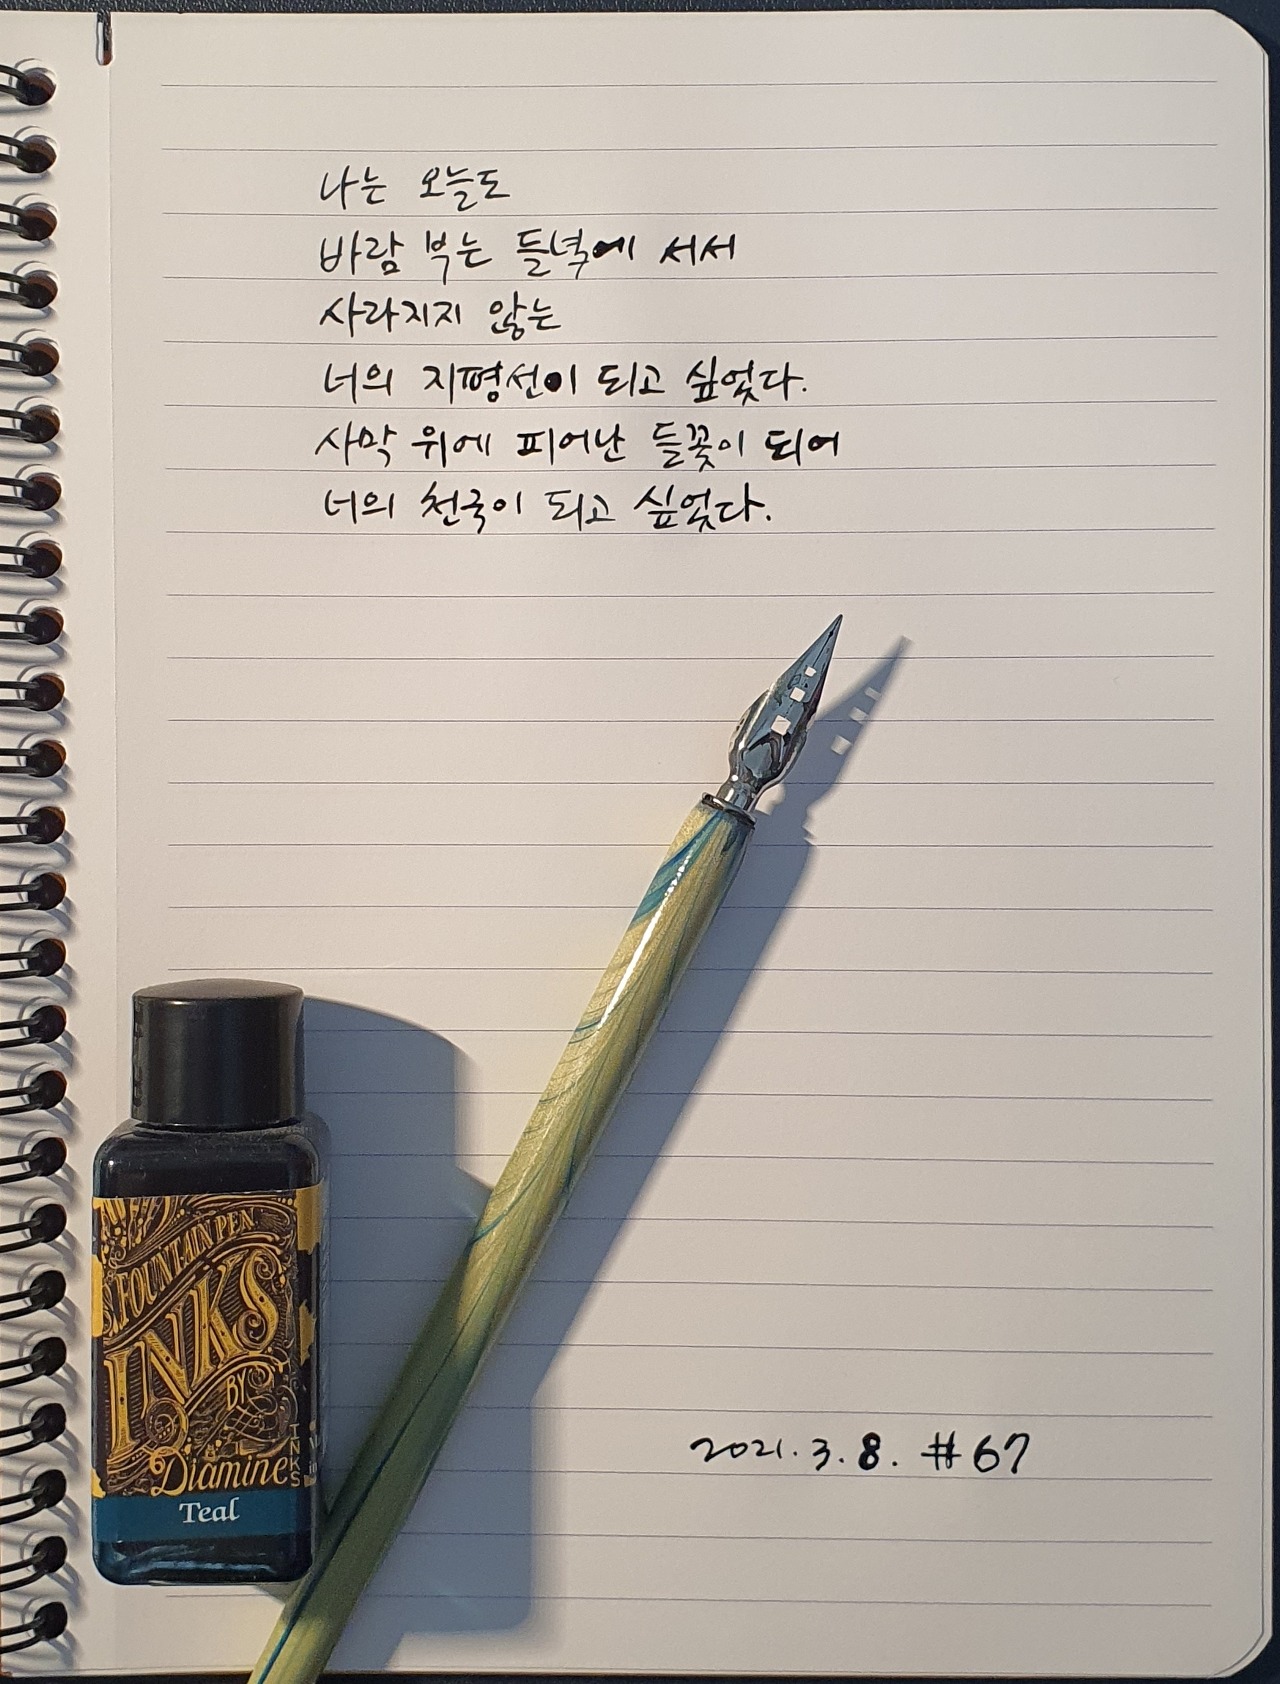 나는 오늘도
바람 부는 들녘에 서서
사라지지 않는
너의 지평선이 되고 싶었다.
사막 위에 피어난 들꽃이 되어
너의 천국이 되고 싶었다.
FOUNTAIN PEN
INKS
BY
Diamine
INKS
Teal
2021. 3. 8. #67